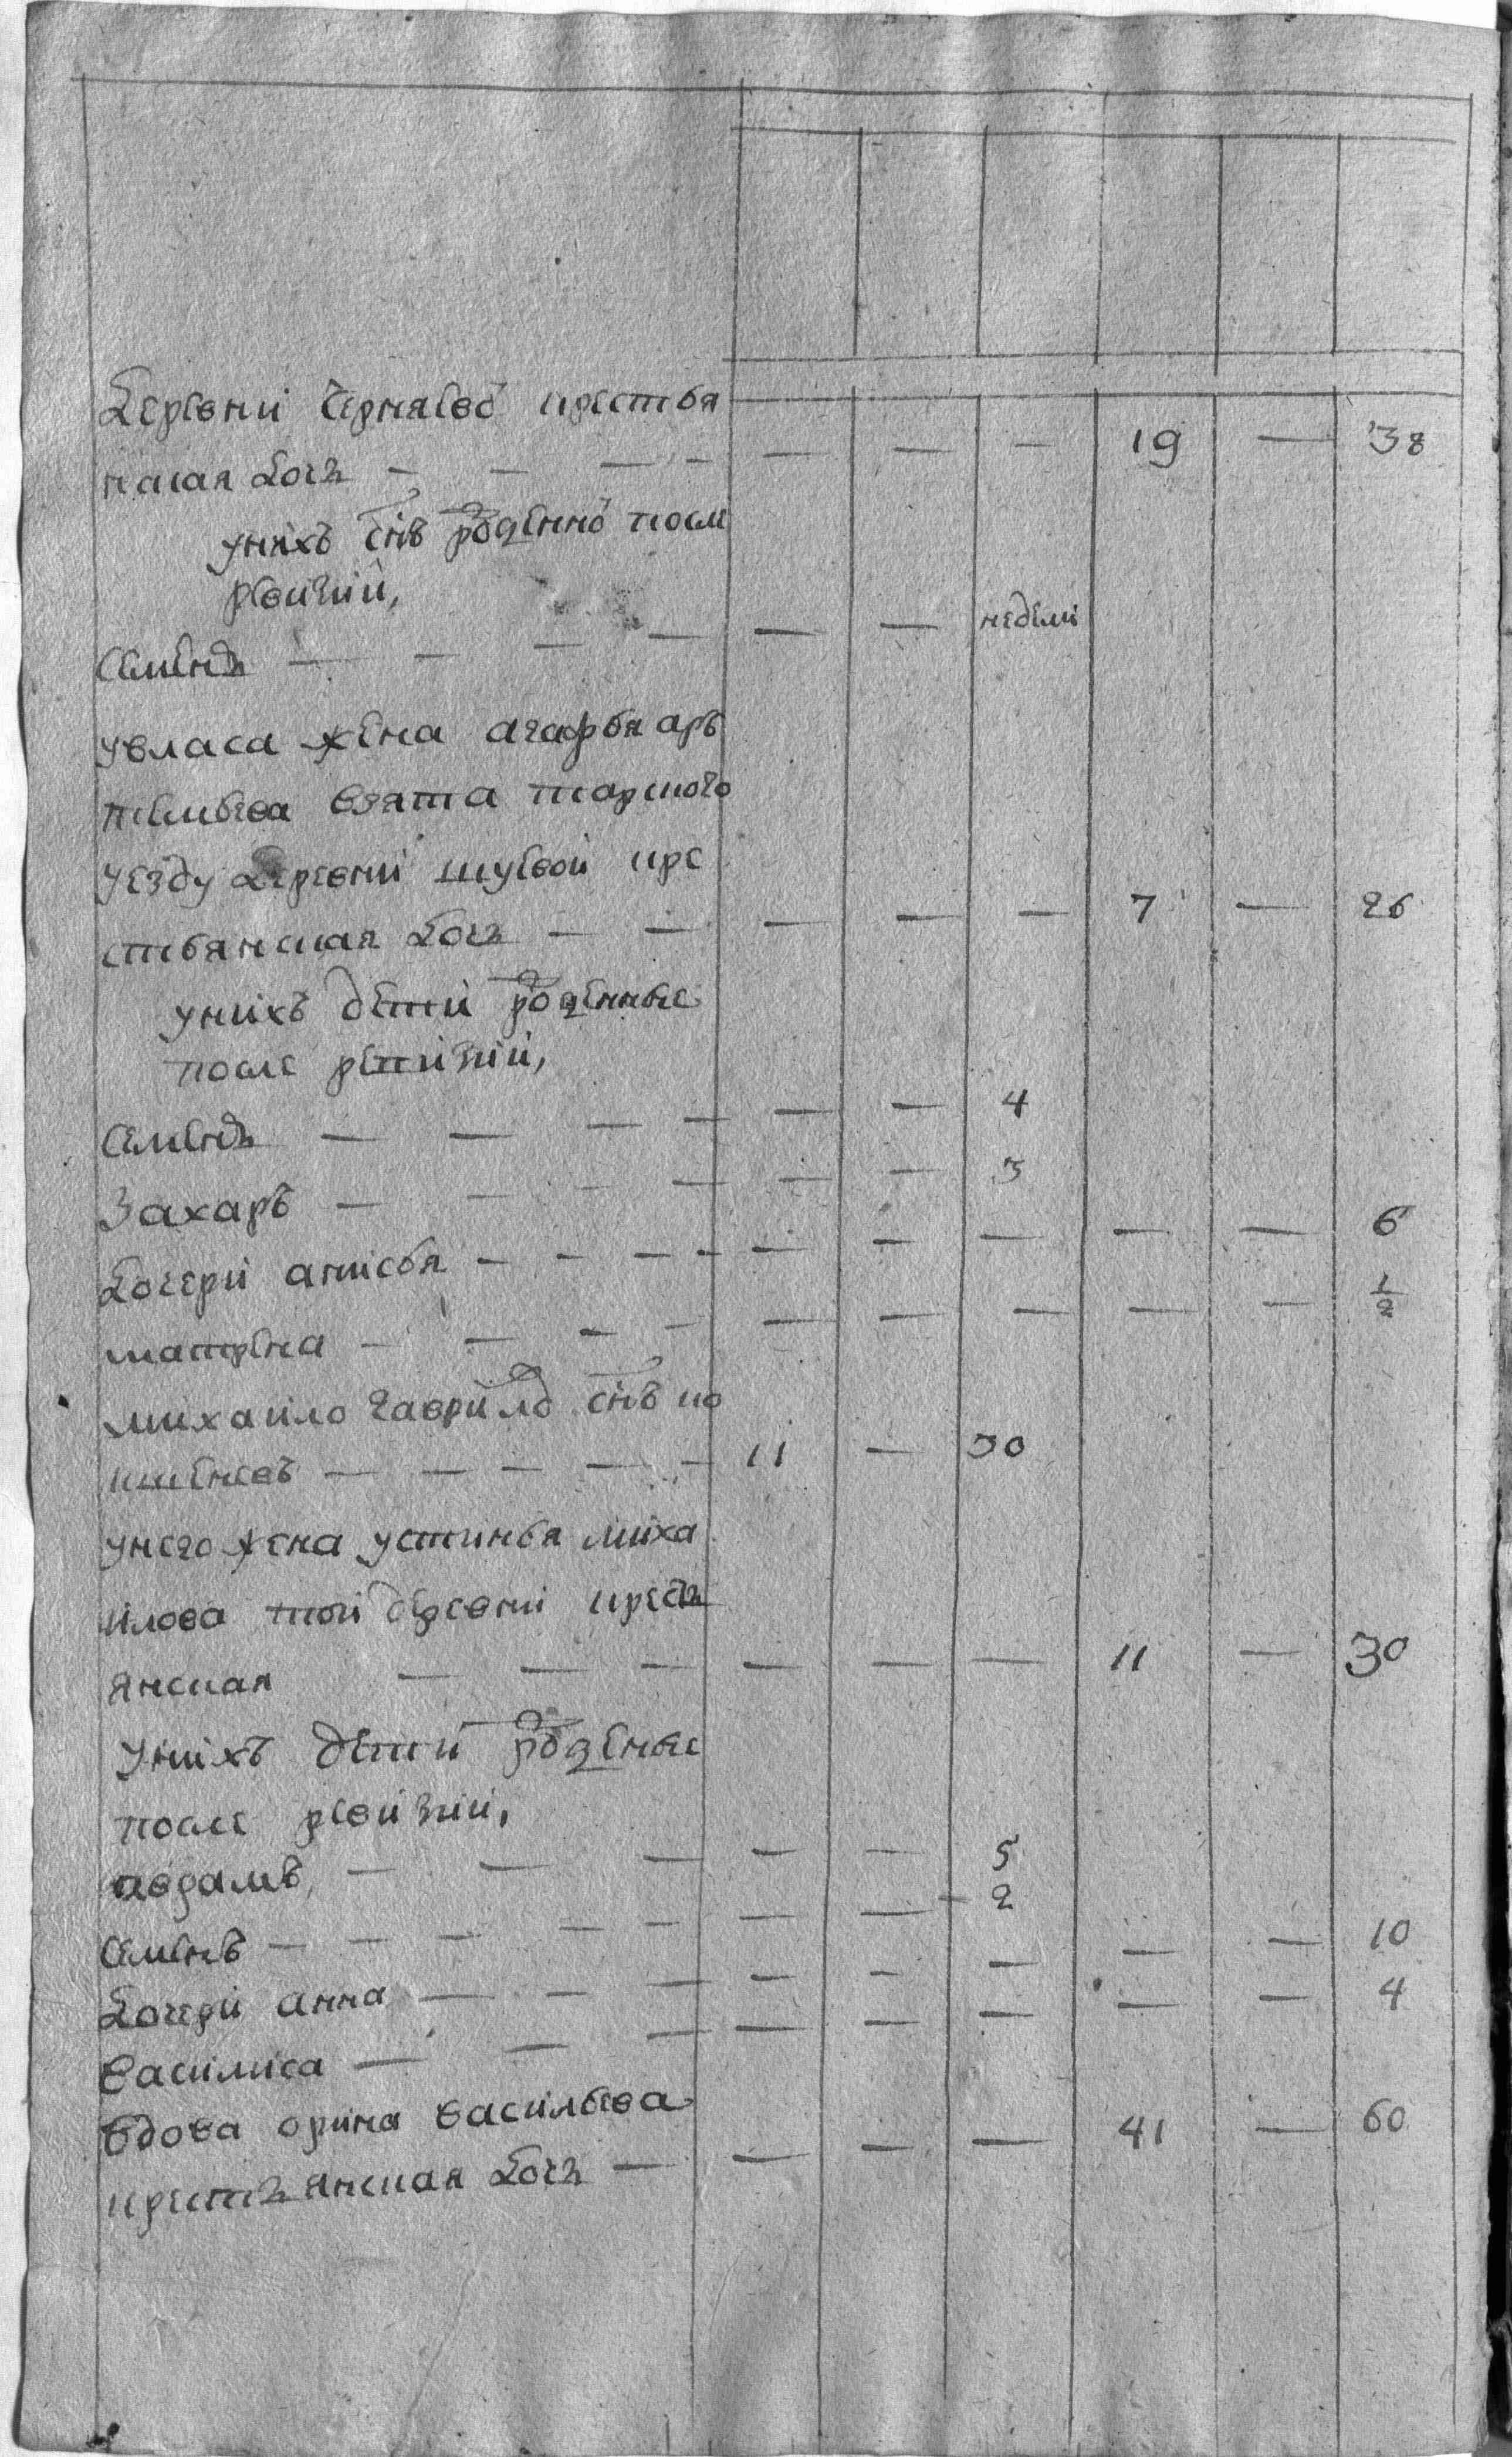 деревни черняево крестья
нская дочь — — — — — — — 19 — 38
у них снъ рожденно после
ревизии,
Семенъ — — — — — — недели
у власа жена агафья ар
темьева взята тарского
уезду деревни шуевой кре
стьянская дочь — — — — — 7 — 26
у нихъ дети рожденные
после ревизии,
Семенъ — — — — — — 4
Захаръ — — — — — — 3
дочери анисья — — — — — — — — — 6
матрена — — — — — — — — — 1/2
михаило гаврило снъ ко
кшеневъ — — — — — 11 — 30
у него жена устинья миха
илова той деревни крестъ
янская — — — — — — 11 — 30
у нихъ дети рожденые
после ревизии,
авраамъ — — — — — 5
Семенъ — — — — — — — 2
дочери анна — — — — — — — — 10
василиса — — — — — — — — 4
вдова орина васильева
крестьянская дочь — — — — 41 — 60